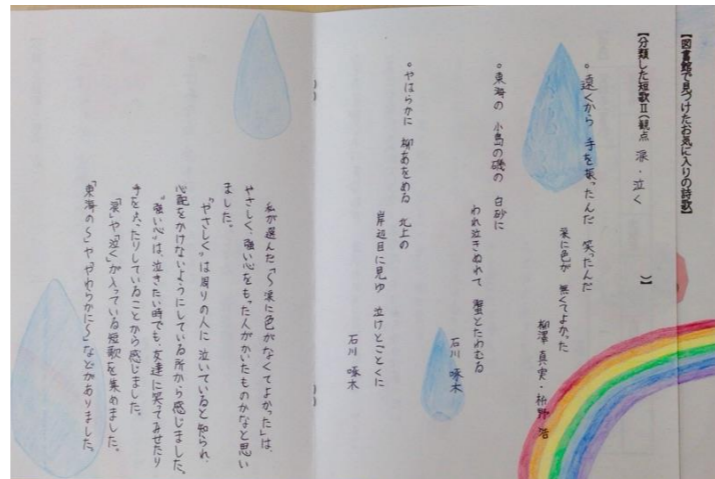 【図書館で見つけたお気に入りの詩歌】
【分類した短歌Ⅱ(観点 涙・泣く )】
○遠くから 手を振ったんだ 笑ったんだ
涙に色が 無くてよかった
柳澤 真実・枡野 浩一
○東海の 小島の磯の 白砂に
われ泣きぬれて 蟹とたわむる
石川 啄木
○やはらかに 柳あをめる 北上の
岸辺目に見ゆ 泣けとごとくに
石川 啄木
私が選んだ「〜涙に色がなくてよかった」は、
やさしく、強い心をもった人がかいたものかなと思い
ました。
"やさしく"は周りの人に泣いていると知られ、
心配をかけないようにしている所から感じました。
"強い心"は、泣きたい時でも、友達に笑ってみせたり
手をふったりしていることから感じました。
「涙」や「泣く」が入っている短歌を集めました。
「東海の〜」や「やわらかに〜」などがありました。